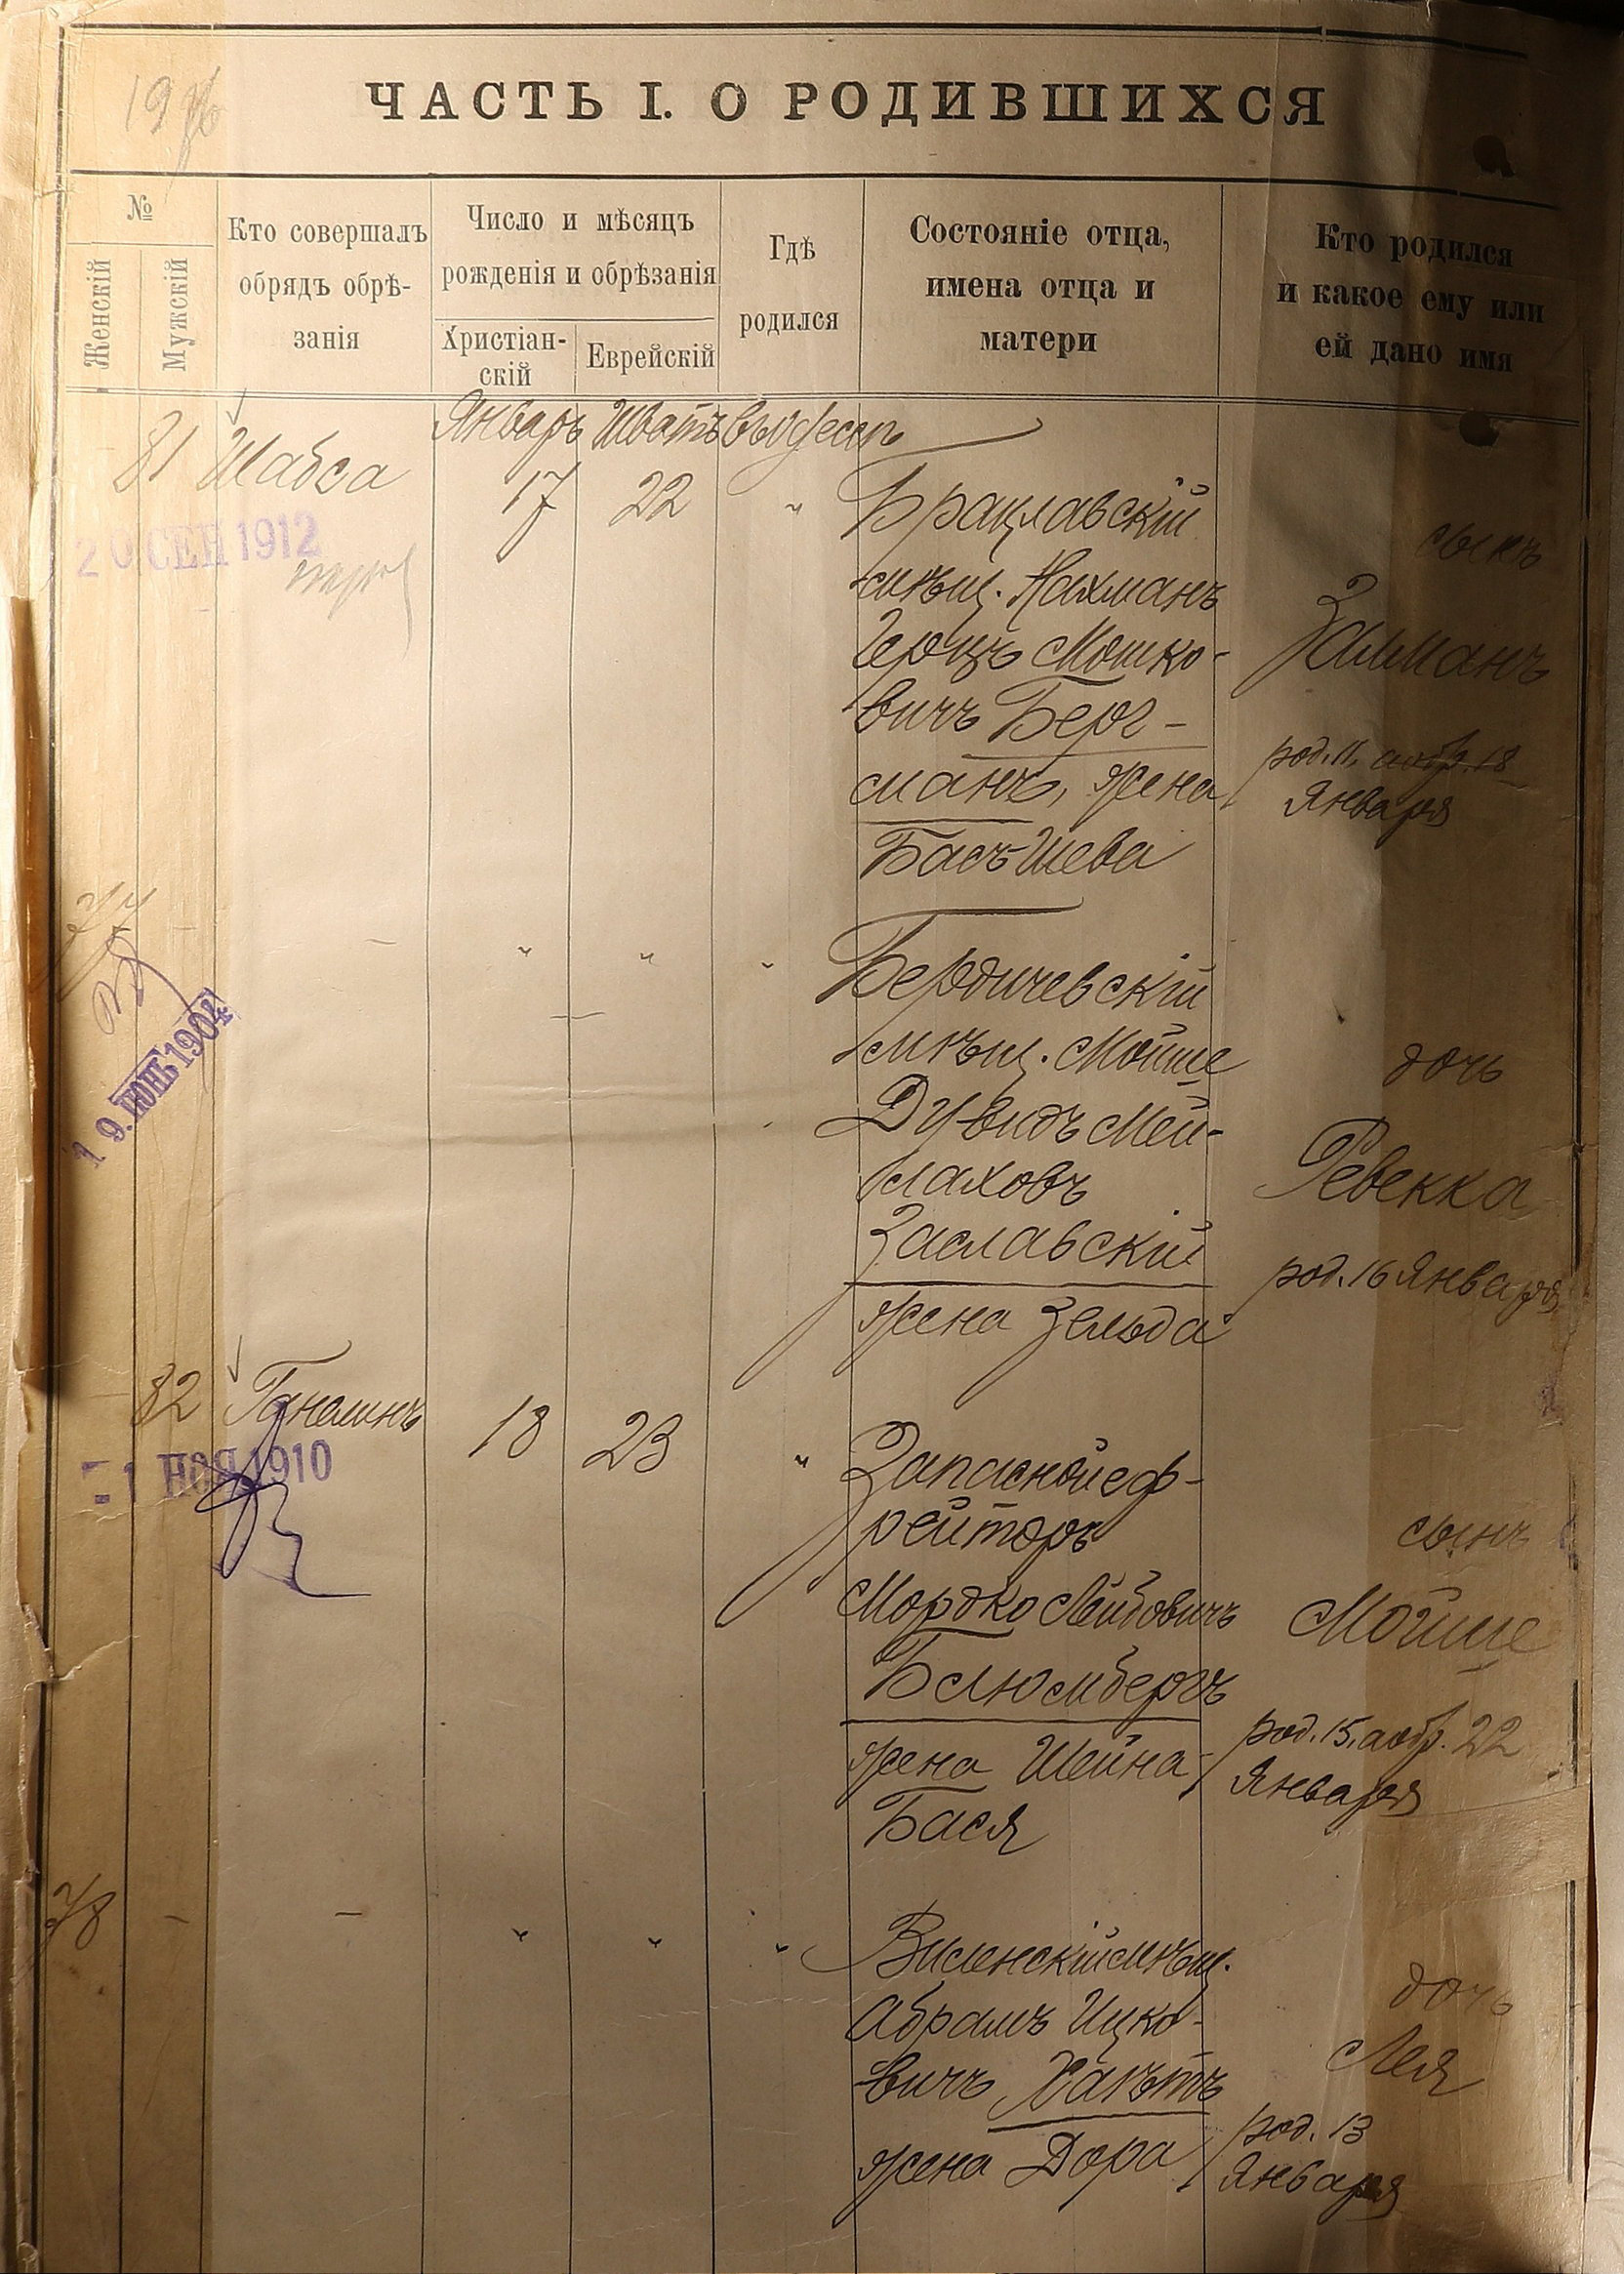 ЧАСТЬ I. О РОДИВШИХСЯ
№
Женскій
Мужскій
Кто совершалъ
обрядъ обрѣ-
занія
Число и мѣсяцъ
рожденія и обрѣзанія
Христіан-
скій
Еврейскій
Гдѣ
родился
Состояніе отца,
имена отца и
матери
Кто родился
и какое ему или
ей дано имя
Январь Шватъ въ Одессѣ
81 Шабса 17 22 "
20 СЕН 1912
Брацлавскій
мѣщ. Нахманъ
Герцъ Мошко-
вичъ Берг-
манъ, жена
Басъ Шева
сынъ
Залманъ
род. 11, а обр. 18
Января
- - " " "
19. ИЮНЬ 1904
Бердичевскій
мѣщ. Мойше
Дувидъ Мей-
лаховъ
Заславскій
жена Зельда
дочь
Ревекка
род. 16 Января
82 18 23 "
1 НОЯ 1910
Запасной еф-
рейторъ
Мордко Лейбовичъ
Блюмбергъ
жена Шейна-
Бася
сынъ
Мойше
род. 15, а обр. 22
Января
78 - - " " "
Виленскій мѣщ.
Абрамъ Ицко-
вичъ
жена Дора
дочь
Лея
род. 13
Января